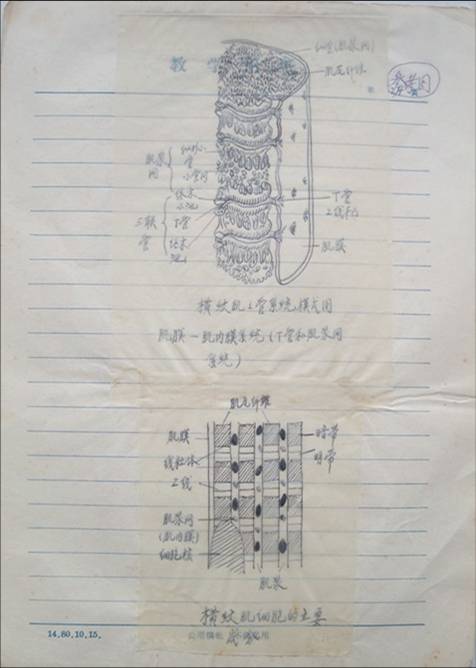 肌原纤维
肌浆网
终末池
三联管
T管
终末池
T管
Z线
肌膜
横纹肌之管系统模式图
肌膜—肌内膜系统(T管和肌浆网
系统)
肌原纤维
肌膜
暗带
线粒体
明带
Z线
肌浆网
(肌内膜)
细胞核
肌浆
横纹肌细胞的主要
成分
14.80.10.15.